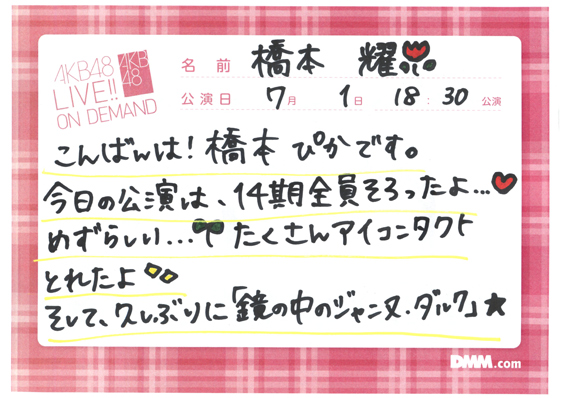 AKB48
LIVE!!
ON DEMAND
AKB
48
名前 橋本 耀
公演日 7月 1日 18:30 公演
こんばんは！橋本ぴかです。
今日の公演は、14期全員そろったよ…
めずらしい…たくさんアイコンタクト
とれたよ
そして、久しぶりに「鏡の中のジャンヌ・ダルク」★
DMM.com